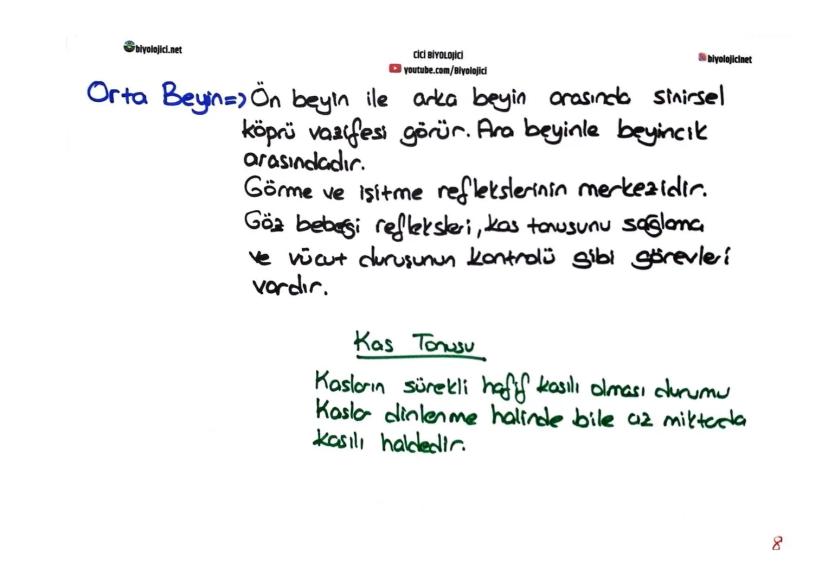 biyolojici.net
CİCİ BİYOLOJİCİ
youtube.com/Biyolojici
biyolojicinet
Orta Beyin=> Ön beyin ile arka beyin arasında sinirsel
köprü vazifesi görür. Ara beyinle beyincik
arasındadır.
Görme ve işitme reflekslerinin merkezidir.
Göz bebeği refleksleri, kas tonusunu sağlama
ve vücut duruşunun kontrolü gibi görevleri
vardır.
Kas Tonusu
Kasların sürekli hafif kasılı olması durumu
Kaslar dinlenme halinde bile az miktarda
kasılı haldedir.
8